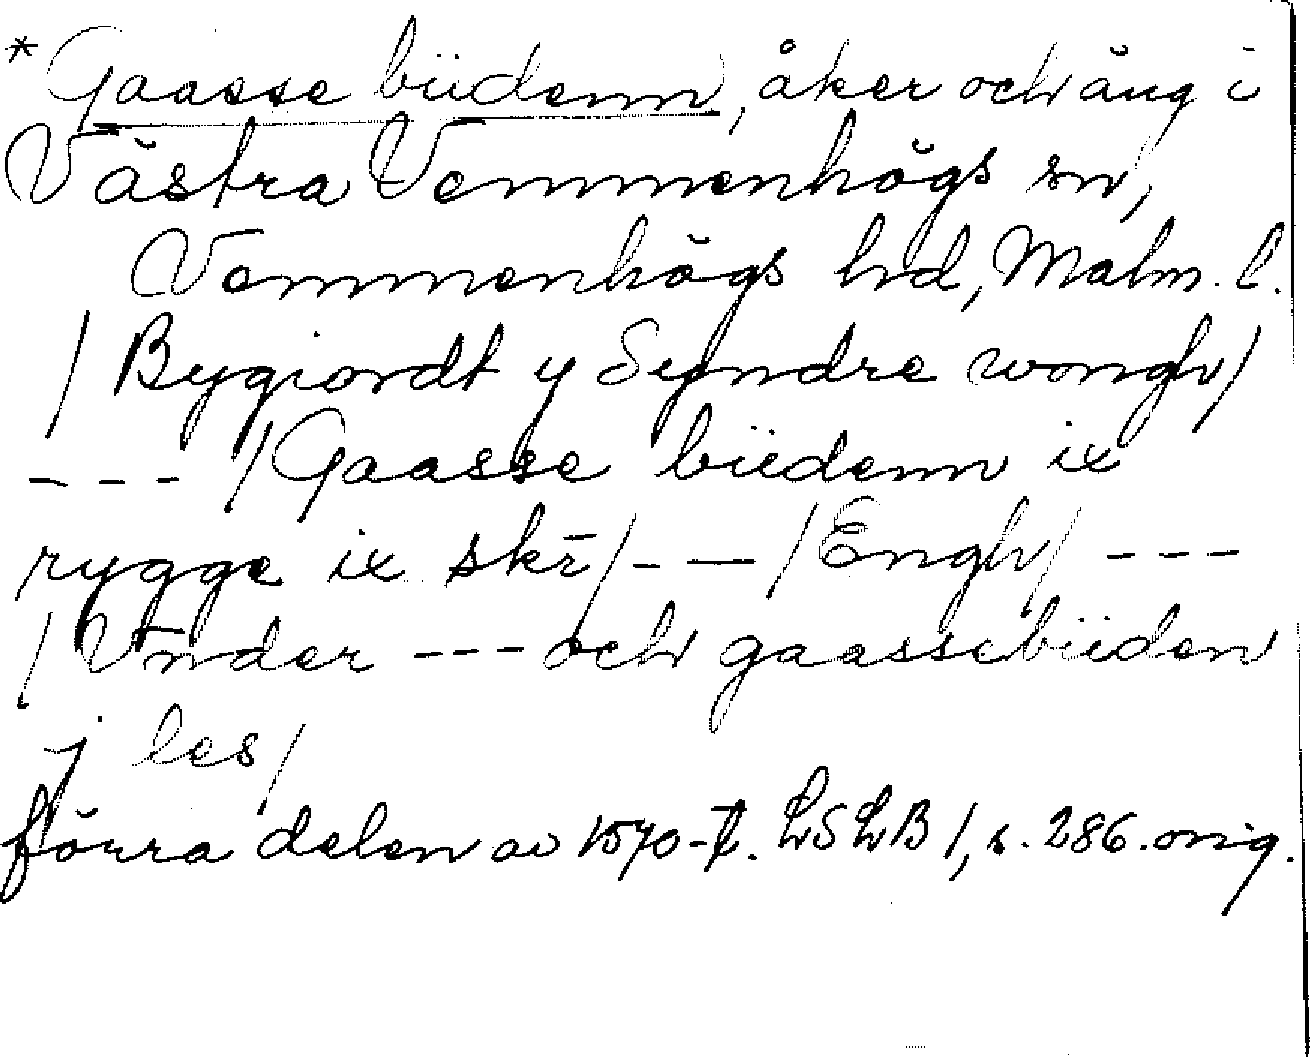 * Gaasse büdenn, åker och äng i
Västra Vemmenhögs sn,
Vemmenhögs hd, Malm. l.
/ Bygiordt y Syndre wongh/
--- / Gaasse büdenn ix
rygge ix skr̄/ --- /Engh/ ---
/ Vnder --- och gaassebüden
j les/
förra delen av 1570-t. LSLB 1, s. 286. orig.